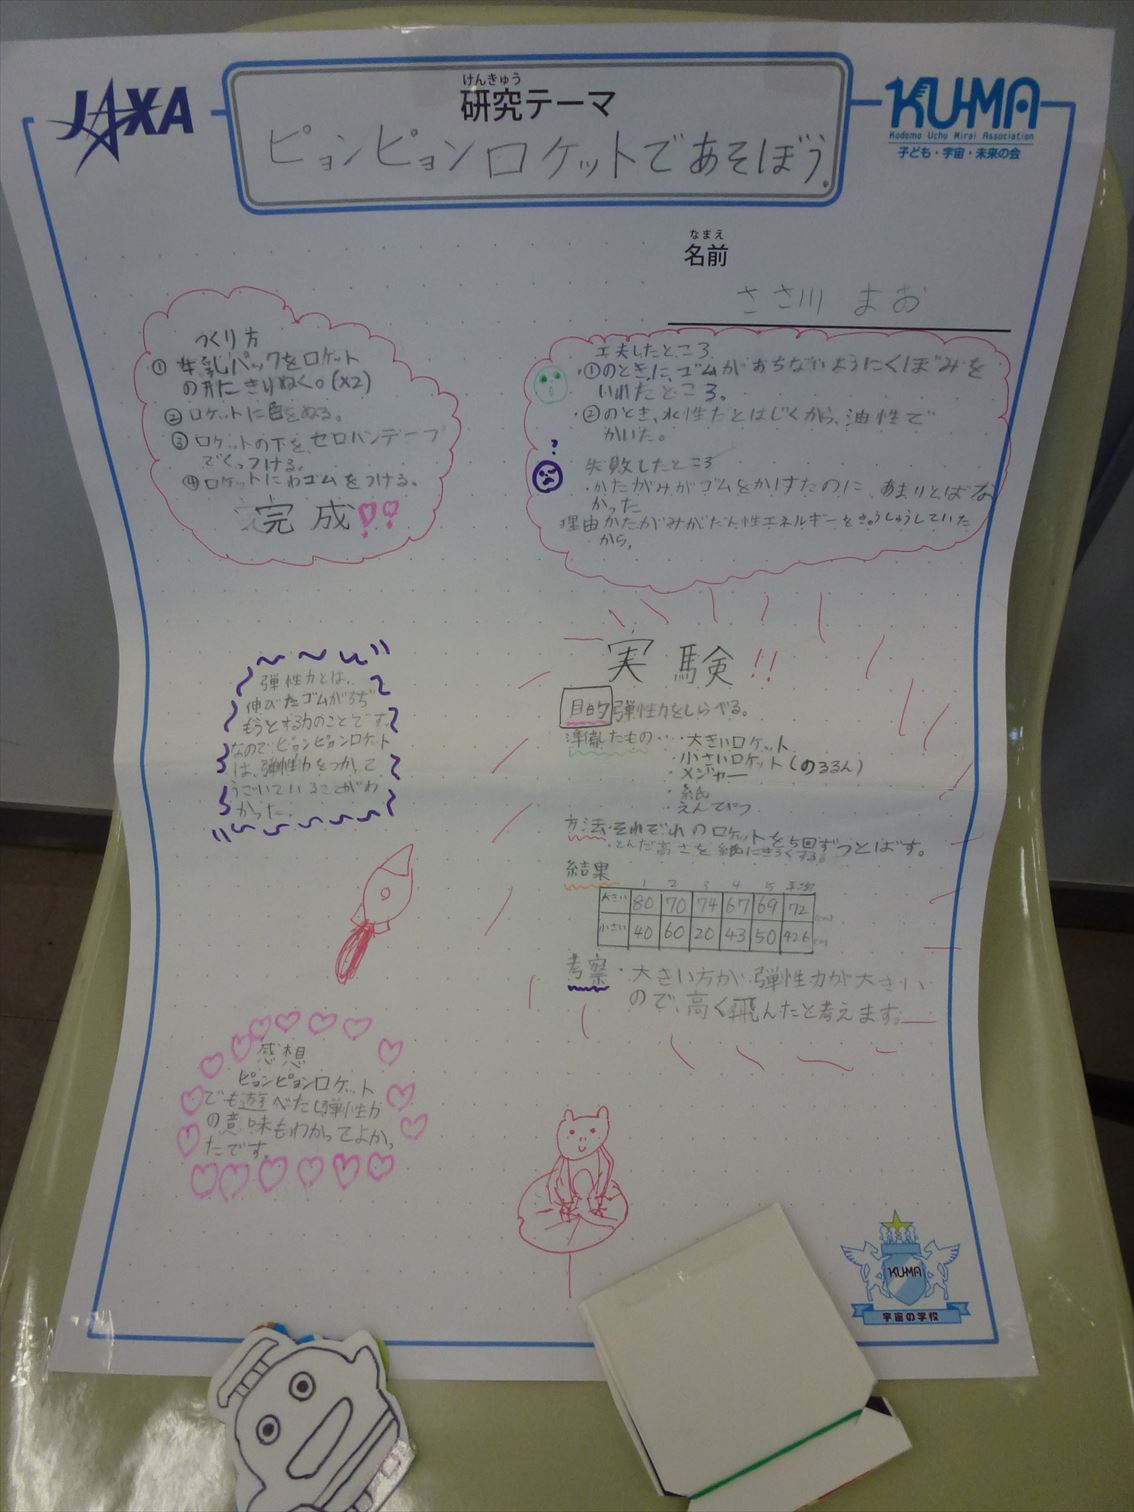 JAXA
けんきゅう
研究テーマ
ピョンピョンロケットであそぼう。
KU-MA
Kodomo Uchu Mirai Association
子ども・宇宙・未来の会
なまえ
名前
ささ川 まお
つくり方
① 牛乳パックをロケット
の形にきりぬく。(×2)
② ロケットに色をぬる。
③ ロケットの下を、セロハンテープ
でくっつける。
④ ロケットにわゴムをつける。
完成!!
工夫したところ
・①のとき、に、ゴムがおちないようにくぼみを
いれたところ。
・②のとき、水性だとはじくから、油性で
かいた。
失敗したところ
・かたがみがゴムをかしすたのに、あまりとばな
かった
理由かたがみがだん性エネルギーをきゅうしゅうしていた
から。
弾性力とは、
伸びたゴムがちぢ
もうとする力のことです。
なのでピョンピョンロケット
は、弾性力をつかって
うごいていることがわ
かった。
実験!!
目的 弾性力をしらべる。
準備したもの・・・大きいロケット
・小さいロケット(のるるん)
・メジャー
・紙
・えんぴつ
方法・それぞれのロケットを5回ずつとばす。
・とんだ高さを紙にきろくする。
結果
1 2 3 4 5 平均
大きい 80 70 74 67 69 72 (cm)
小さい 40 60 20 43 50 42.6 cm
考察・大きい方が弾性力が大きい
ので、高く飛んだと考えます。
感想
ピョンピョンロケット
でも遊べたし弾性力
の意味もわかってよかっ
たです。
KU-MA
宇宙の学校